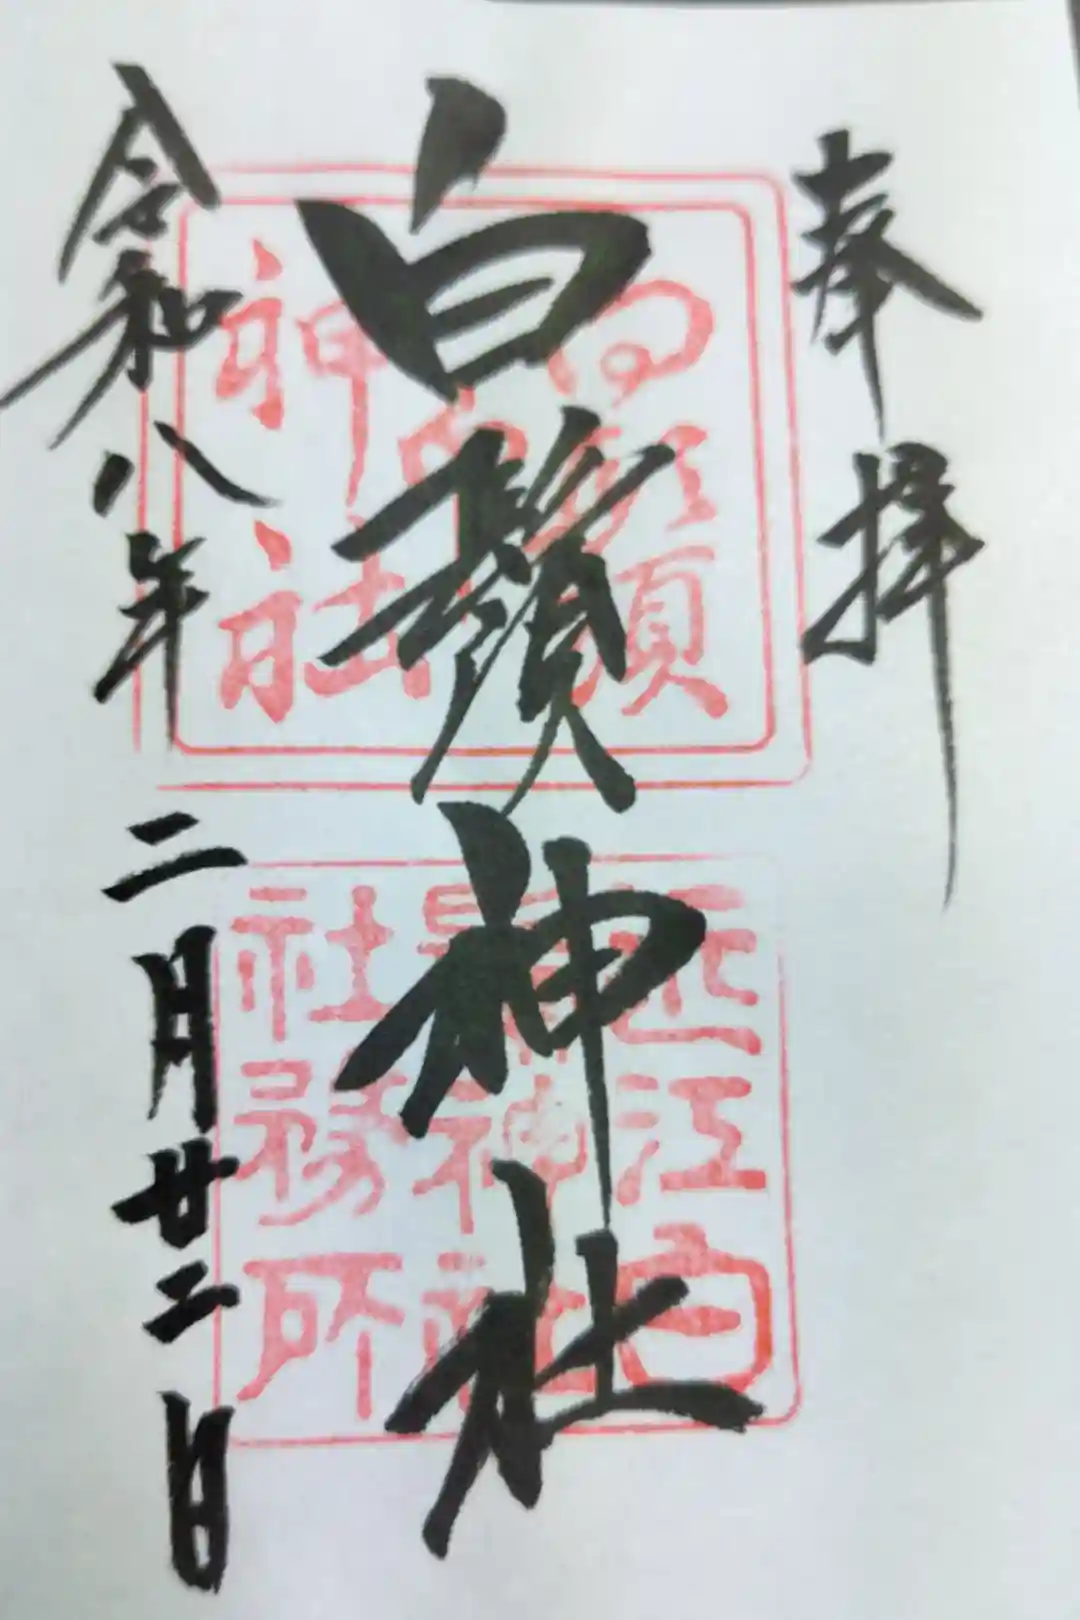 奉拝
白鬚神社
令和八年二月廿二日
神社
近江白
神社
社務所